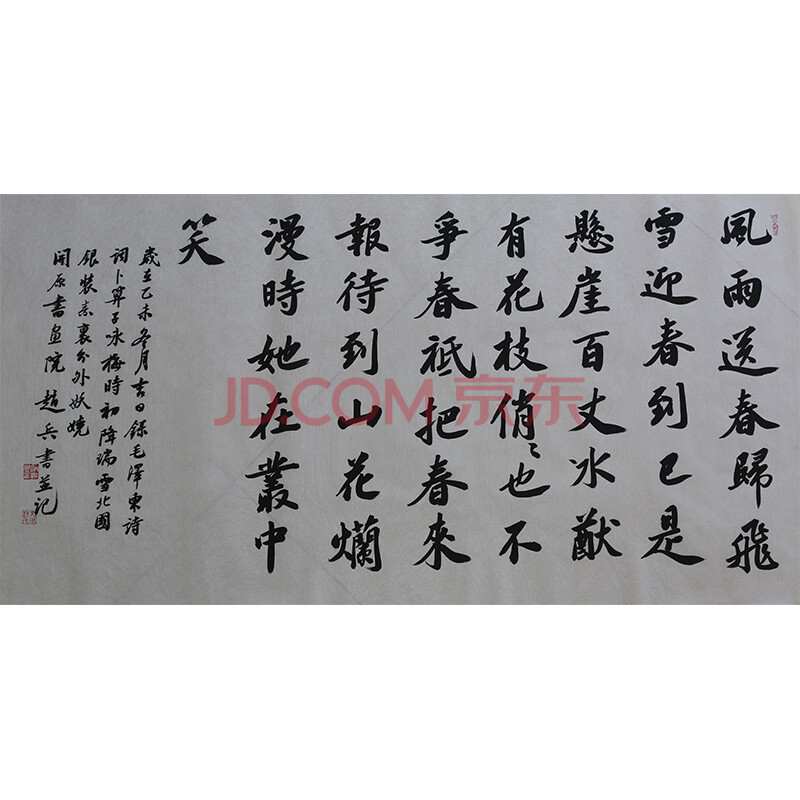 風雨送春歸飛
雪迎春到已是
懸崖百丈冰猷
有花枝俏〻也不
爭春祇把春來
報待到山花爛
漫時她在叢中
笑
歲在乙未冬月吉日錄毛澤東詩
詞卜算子咏梅時初降瑞雪北國
銀裝素裹分外妖嬈
開原書画院趙兵書並记
JD.COM 京东